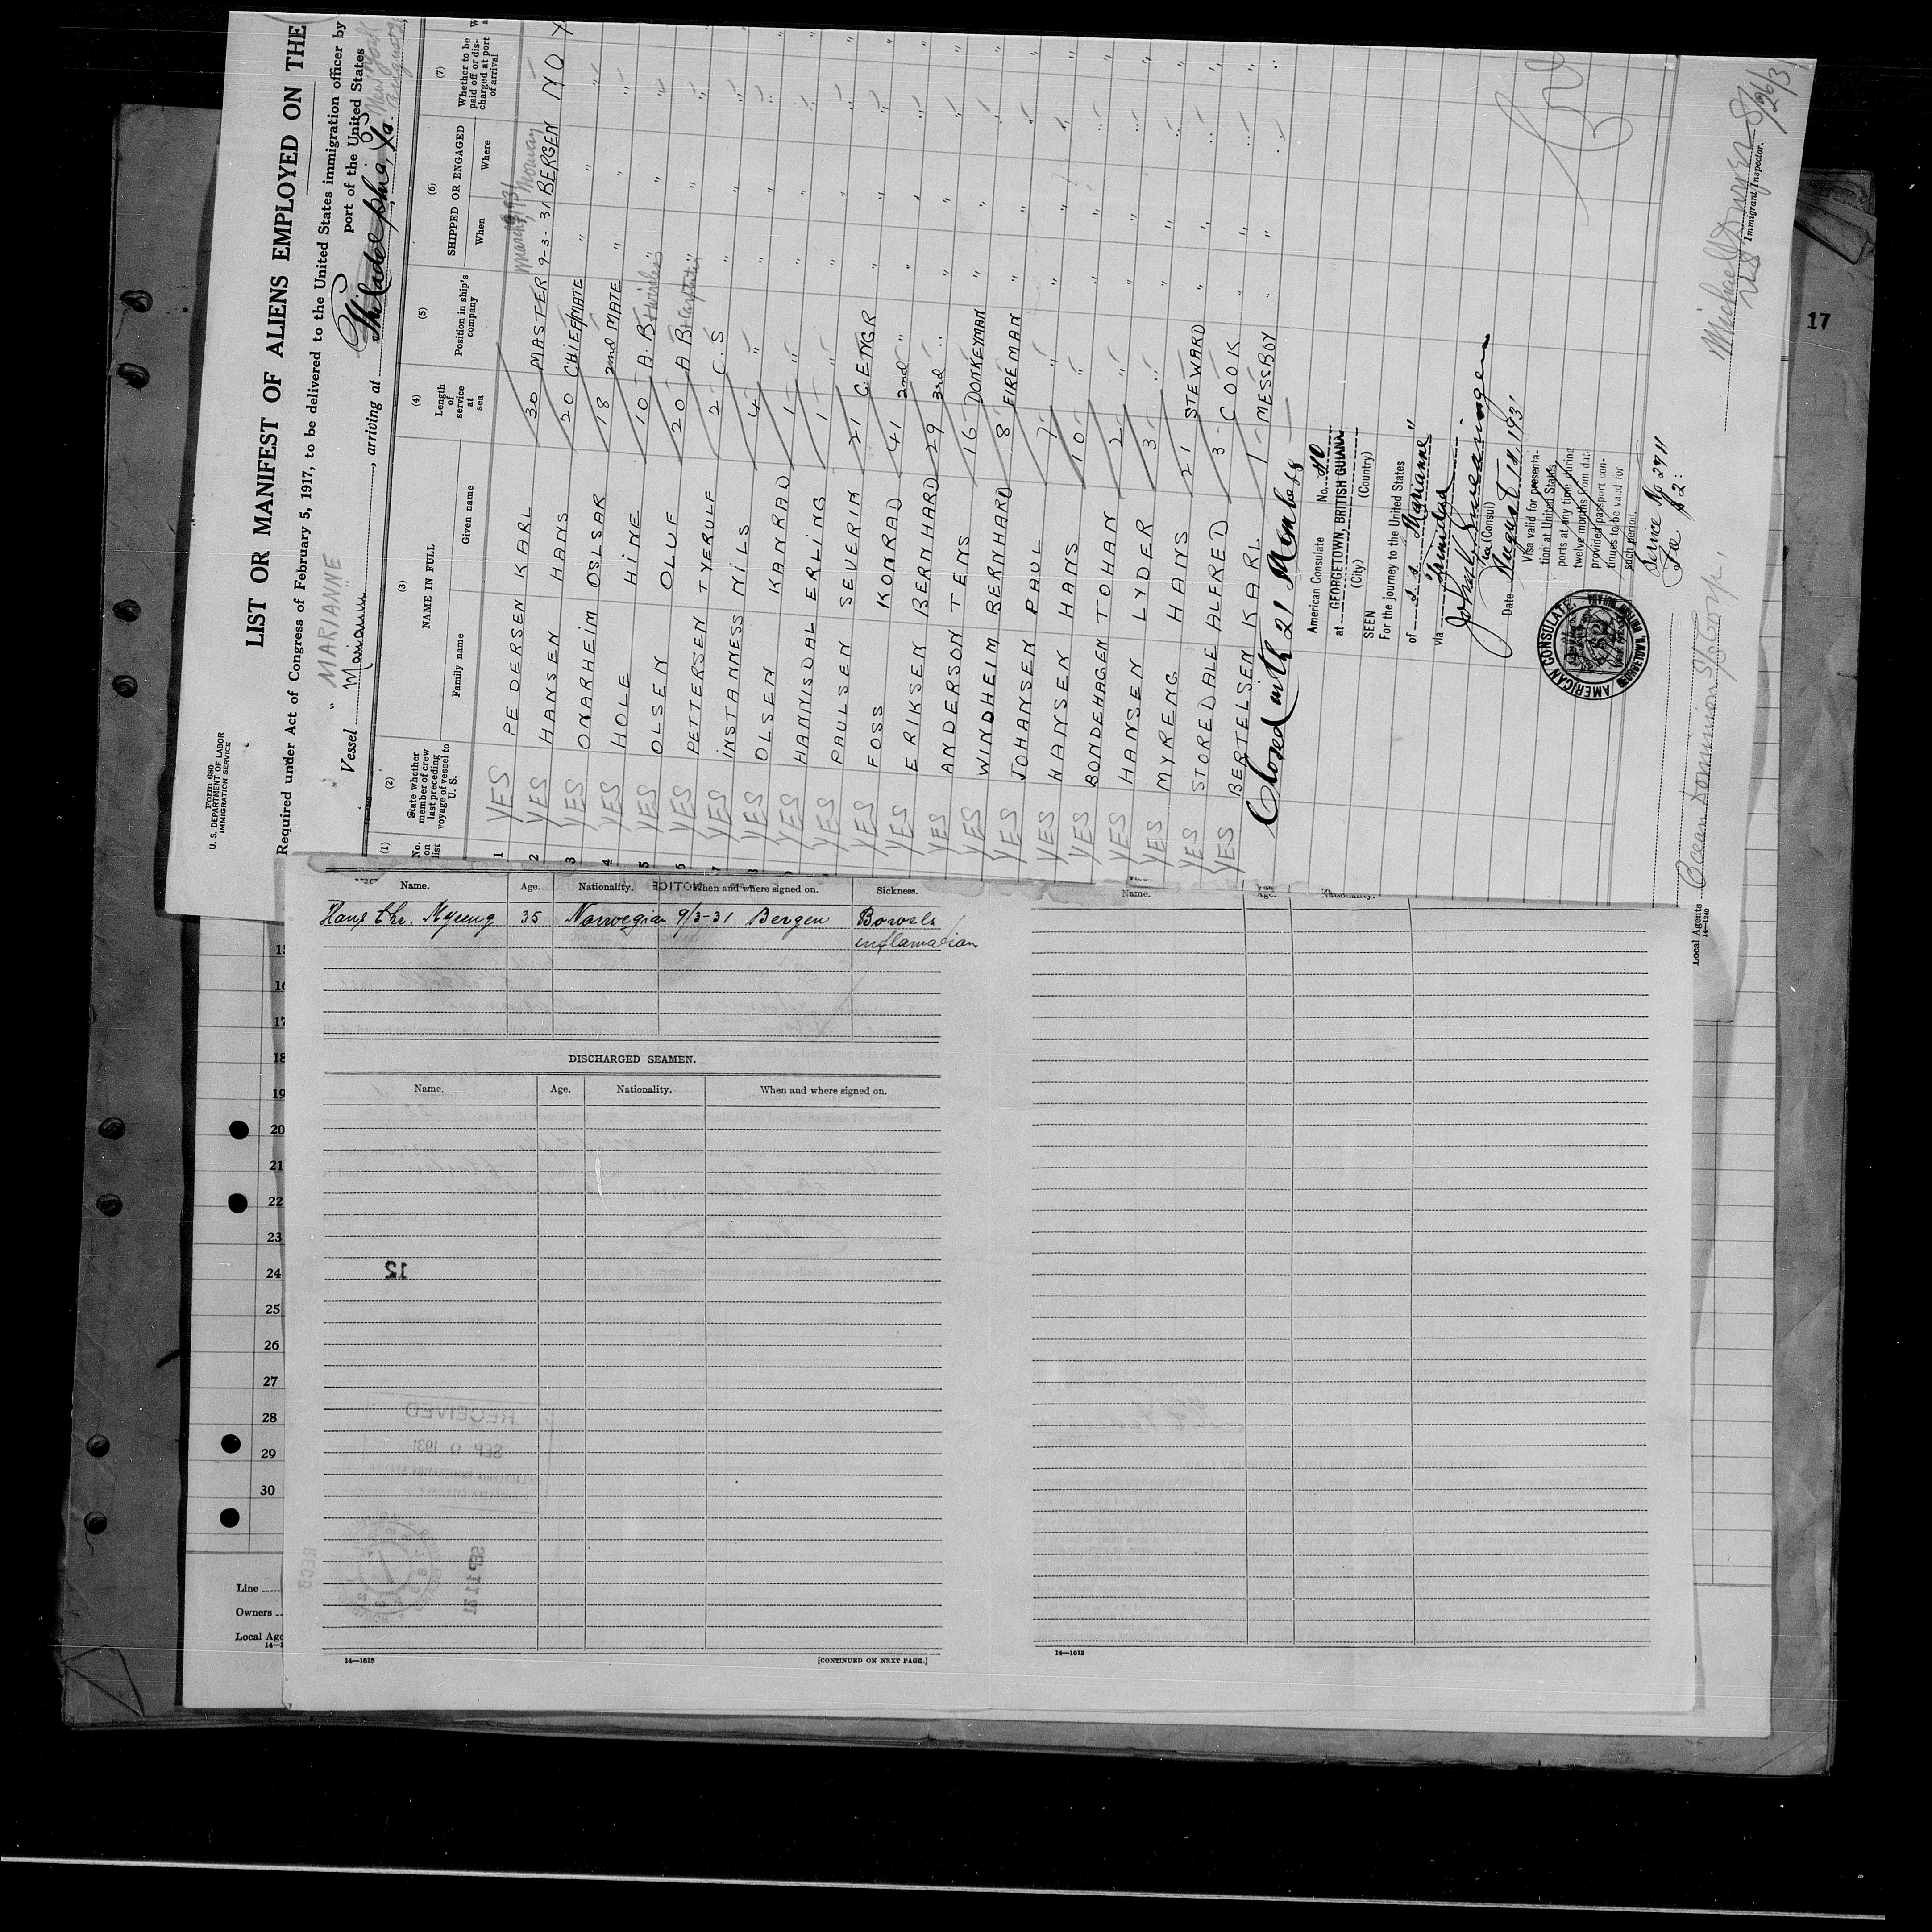 Form 680
U. S. DEPARTMENT OF LABOR
IMMIGRATION SERVICE
LIST OR MANIFEST OF ALIENS EMPLOYED ON THE
Required under Act of Congress of February 5, 1917, to be delivered to the United States immigration officer by
port of the United States
" MARIANNE "
Vessel "Marianne" , arriving at Philadelphia, Pa.
New York
August
(1) (2) (3) (4) (5) (6) (7)
No. on list
State whether member of crew last preceding voyage of vessel to U. S.
NAME IN FULL
Family name Given name
Length of service at sea
Position in ship's company
SHIPPED OR ENGAGED
When Where
Whether to be paid off or discharged at port of arrival
March 9, 1931 Norway
1 YES PEDERSEN KARL 30 MASTER 9-3-31 BERGEN NO
2 YES HANSEN HANS 20 CHIEF MATE " " "
3 YES ONARHEIM OSLSAR 18 2nd MATE " " "
4 YES HOLE HINE 10 A. B + wireless " " "
5 YES OLSEN OLUF 20 A B + Carpenter " " "
6 YES PETTERSEN TYERULF 2 C. S " " "
7 YES INSTANNESS NILS 4 " " " "
8 YES OLSEN KANRAD 1 " " " "
YES HANNISDAL ERLING 1 " " " "
YES PAULSEN SEVERIN 21 C. ENGR " " "
YES FOSS KONRAD 41 2nd " " " "
YES ERIKSEN BERNHARD 29 3rd " " " "
YES ANDERSON TENS 16 DONKEYMAN " " "
YES WINDHEIM BERNHARD 8 FIREMAN " " "
YES JOHANSEN PAUL 7 " " " "
YES HANSEN HANS 10 " " " "
YES BONDEHAGEN TOHAN 2 " " " "
YES HANSEN LYDER 3 " " " "
YES MYRENG HANS 21 STEWARD " " "
YES STOREDALE ALFRED 3 COOK " " "
YES BERTELSEN KARL 1 MESSBOY " " "
Closed with 21 Members
American Consulate No. 40
at GEORGETOWN, BRITISH GUIANA
(City) (Country)
SEEN
For the journey to the United States
of s. s. "Marianne"
via Trinidad
(Vice Consul)
Date August 14, 1931
Visa valid for presenta-
tion at United States
ports at any time during
twelve months from date
provided passport con-
tinues to be valid for
such period.
AMERICAN CONSULATE.
Service No 2911
Fee $2.
Immigrant Inspector.
8/26/31
Local Agents Ocean Dominion S/S Corp.
14—1240
17
Name. Age. Nationality. When and where signed on. Sickness.
NOTICE
Hans Chr. Myreng 35 Norwegian 9/3-31 Bergen Bowels
inflamasion
DISCHARGED SEAMEN.
Name. Age. Nationality. When and where signed on.
12
RECEIVED
SEP 1931
REC'D
SEP 11 31
14—1613 [CONTINUED ON NEXT PAGE.]
Name. Age. Nationality.
14—1613
15
16
17
18
19
20
21
22
23
24
25
26
27
28
29
30
Line
Owners
Local Age
14—1